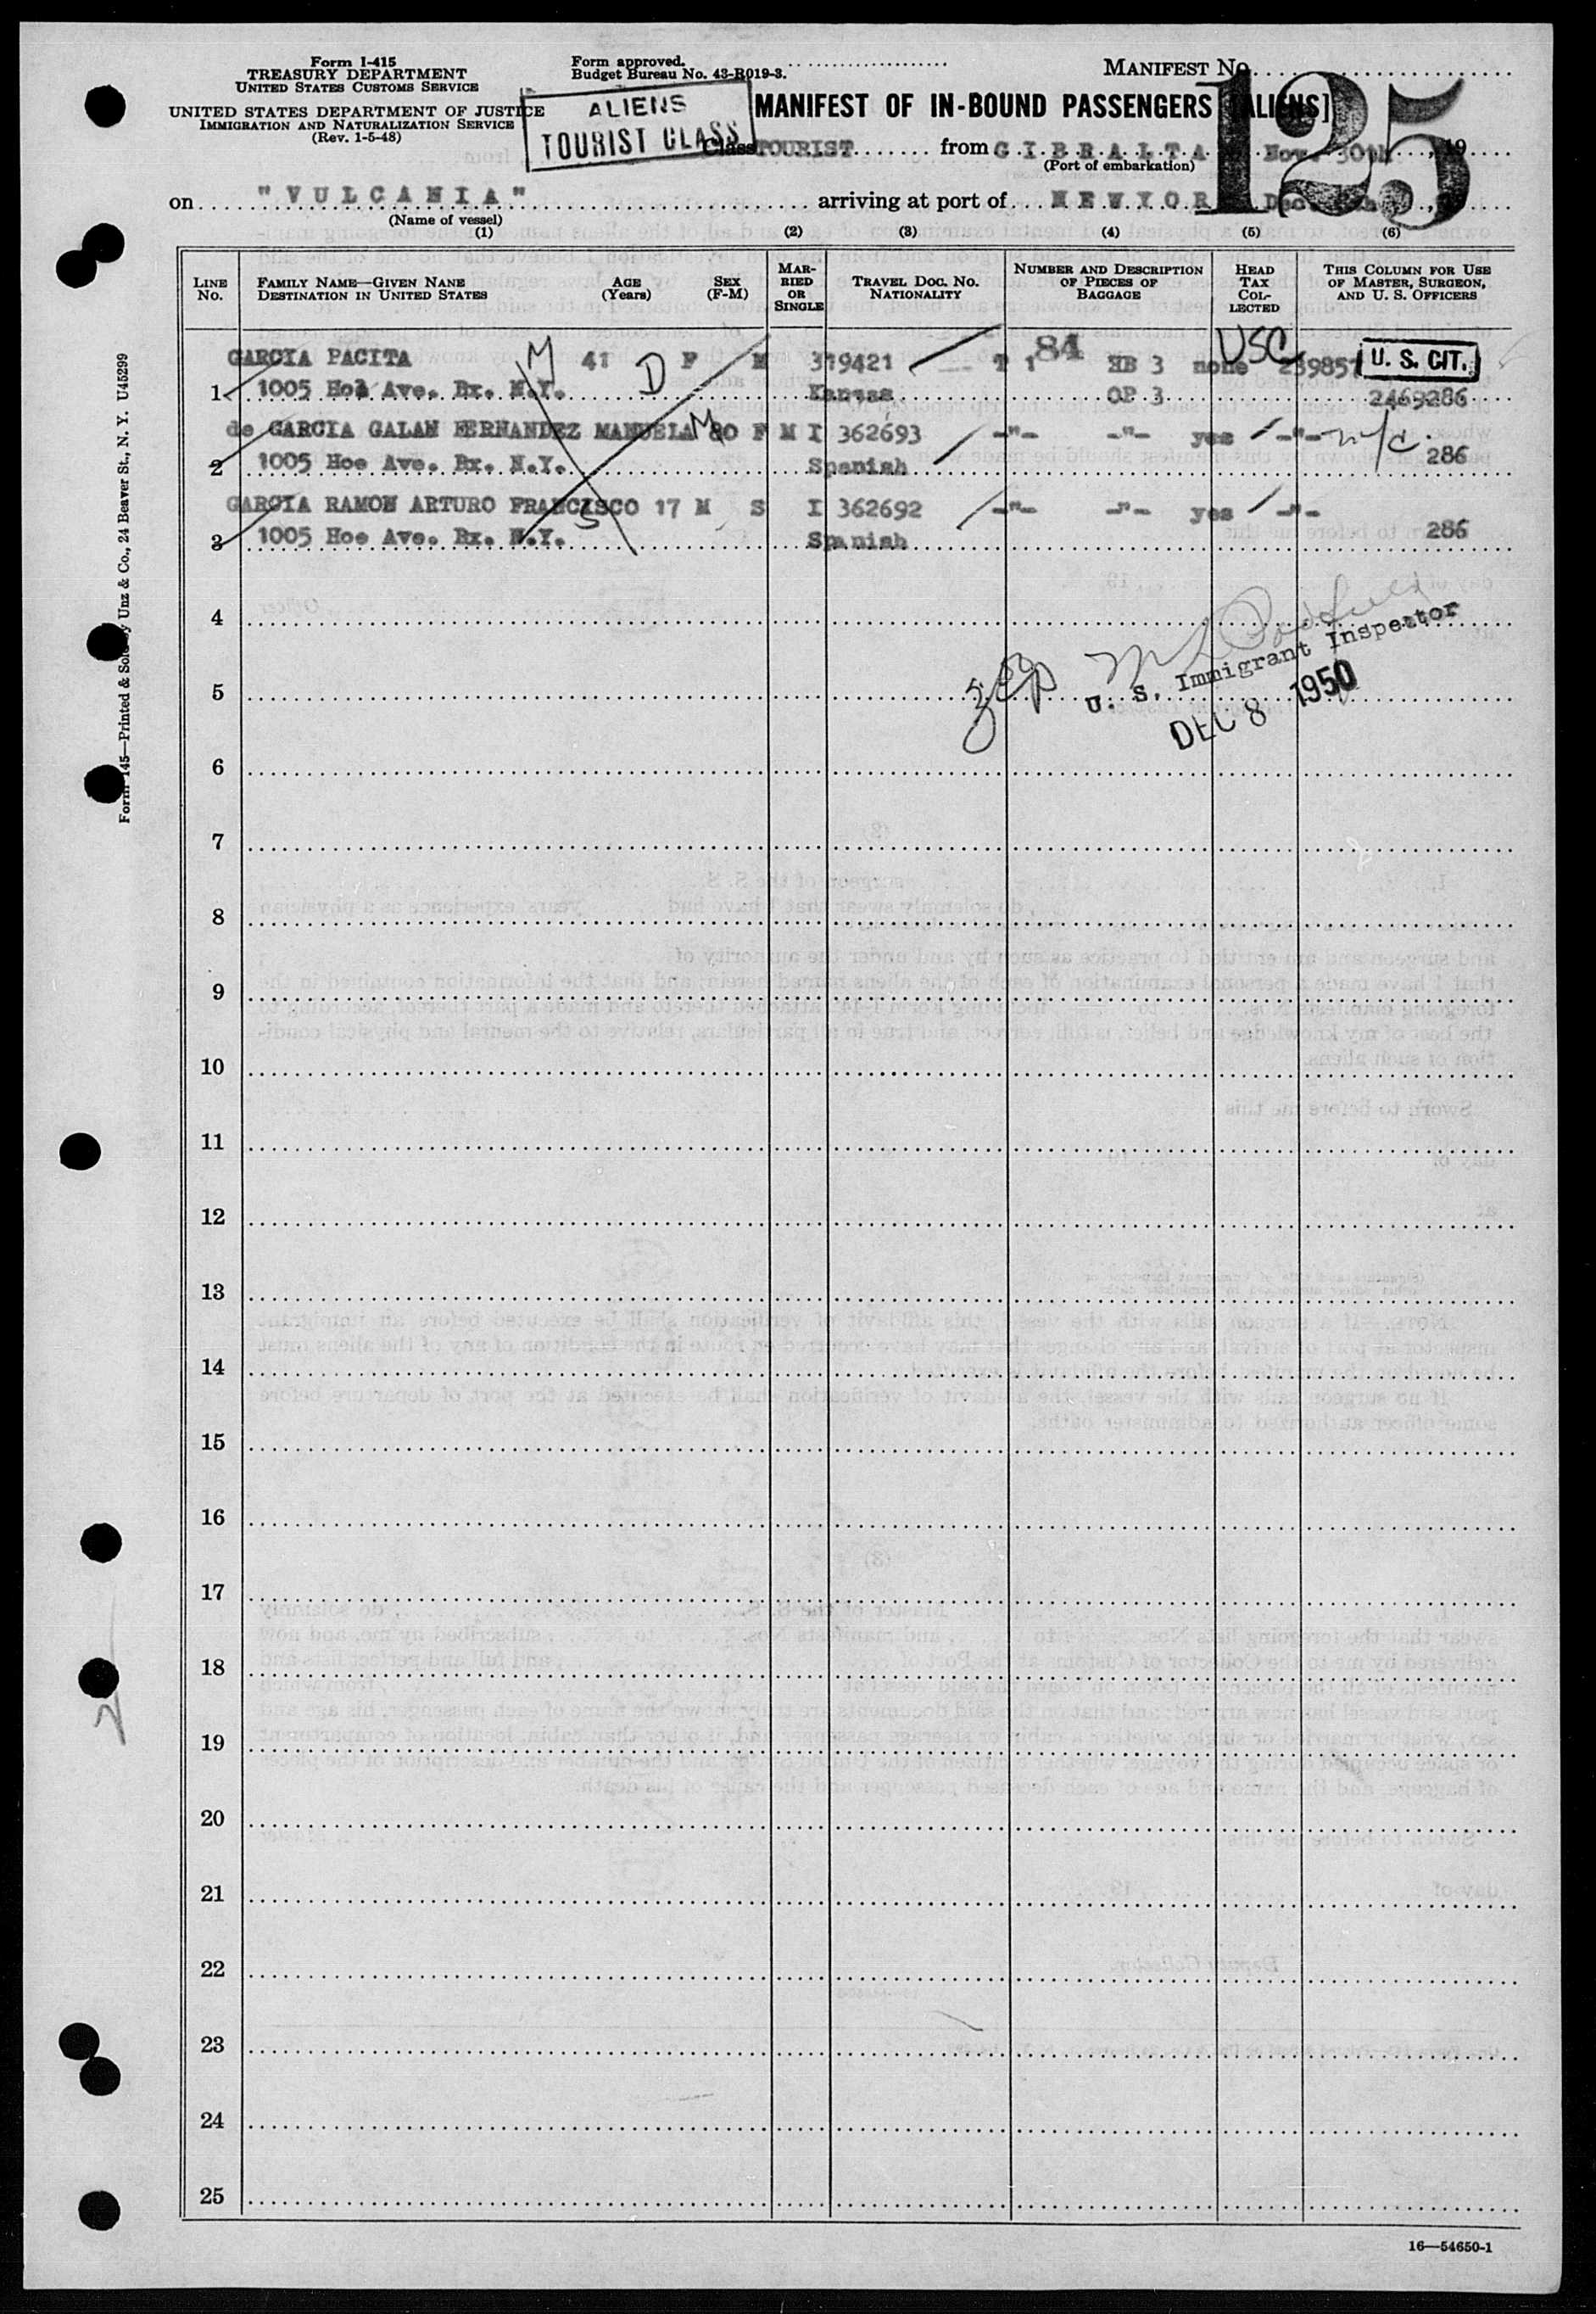 Form I-415
TREASURY DEPARTMENT
UNITED STATES CUSTOMS SERVICE
UNITED STATES DEPARTMENT OF JUSTICE
IMMIGRATION AND NATURALIZATION SERVICE
(Rev. 1-5-48)
Form approved.
Budget Bureau No. 43-R019-3.
MANIFEST NO.
125
ALIENS
TOURIST CLASS
MANIFEST OF IN-BOUND PASSENGERS [ALIENS]
Class TOURIST from GIBRALTA Nov. 30th, 19
(Port of embarkation)
on "VULCANIA" arriving at port of NEWYOR Dec.
(Name of vessel)
(1) (2) (3) (4) (5) (6)
LINE No. FAMILY NAME—GIVEN NANE DESTINATION IN UNITED STATES AGE (Years) SEX (F-M) MARRIED OR SINGLE TRAVEL DOC. NO. NATIONALITY NUMBER AND DESCRIPTION OF PIECES OF BAGGAGE HEAD TAX COLLECTED THIS COLUMN FOR USE OF MASTER, SURGEON, AND U. S. OFFICERS
GARCIA PACITA M 41 D F M 319421 T 1 84 HB 3 none USC 239857 U. S. CIT.
1 1005 Hoe Ave. Bx. N.Y. Kansas OP 3 2469286
de GARCIA GALAN FERNANDEZ MANUELA M 80 F M I 362693 -"- -"- yes -"- n/c.
2 1005 Hoe Ave. Bx. N.Y. Spanish 286
GARCIA RAMON ARTURO FRANCISCO 17 M S I 362692 -"- -"- yes -"-
3 1005 Hoe Ave. Bx. N.Y. S Spanish 286
4
U. S. Immigrant Inspector
5
DEC 8 1950
6
7
8
9
10
11
12
13
14
15
16
17
18
19
20
21
22
23
24
25
16—54650-1
Form 145—Printed & Sold by Unz & Co., 24 Beaver St., N. Y. U45299